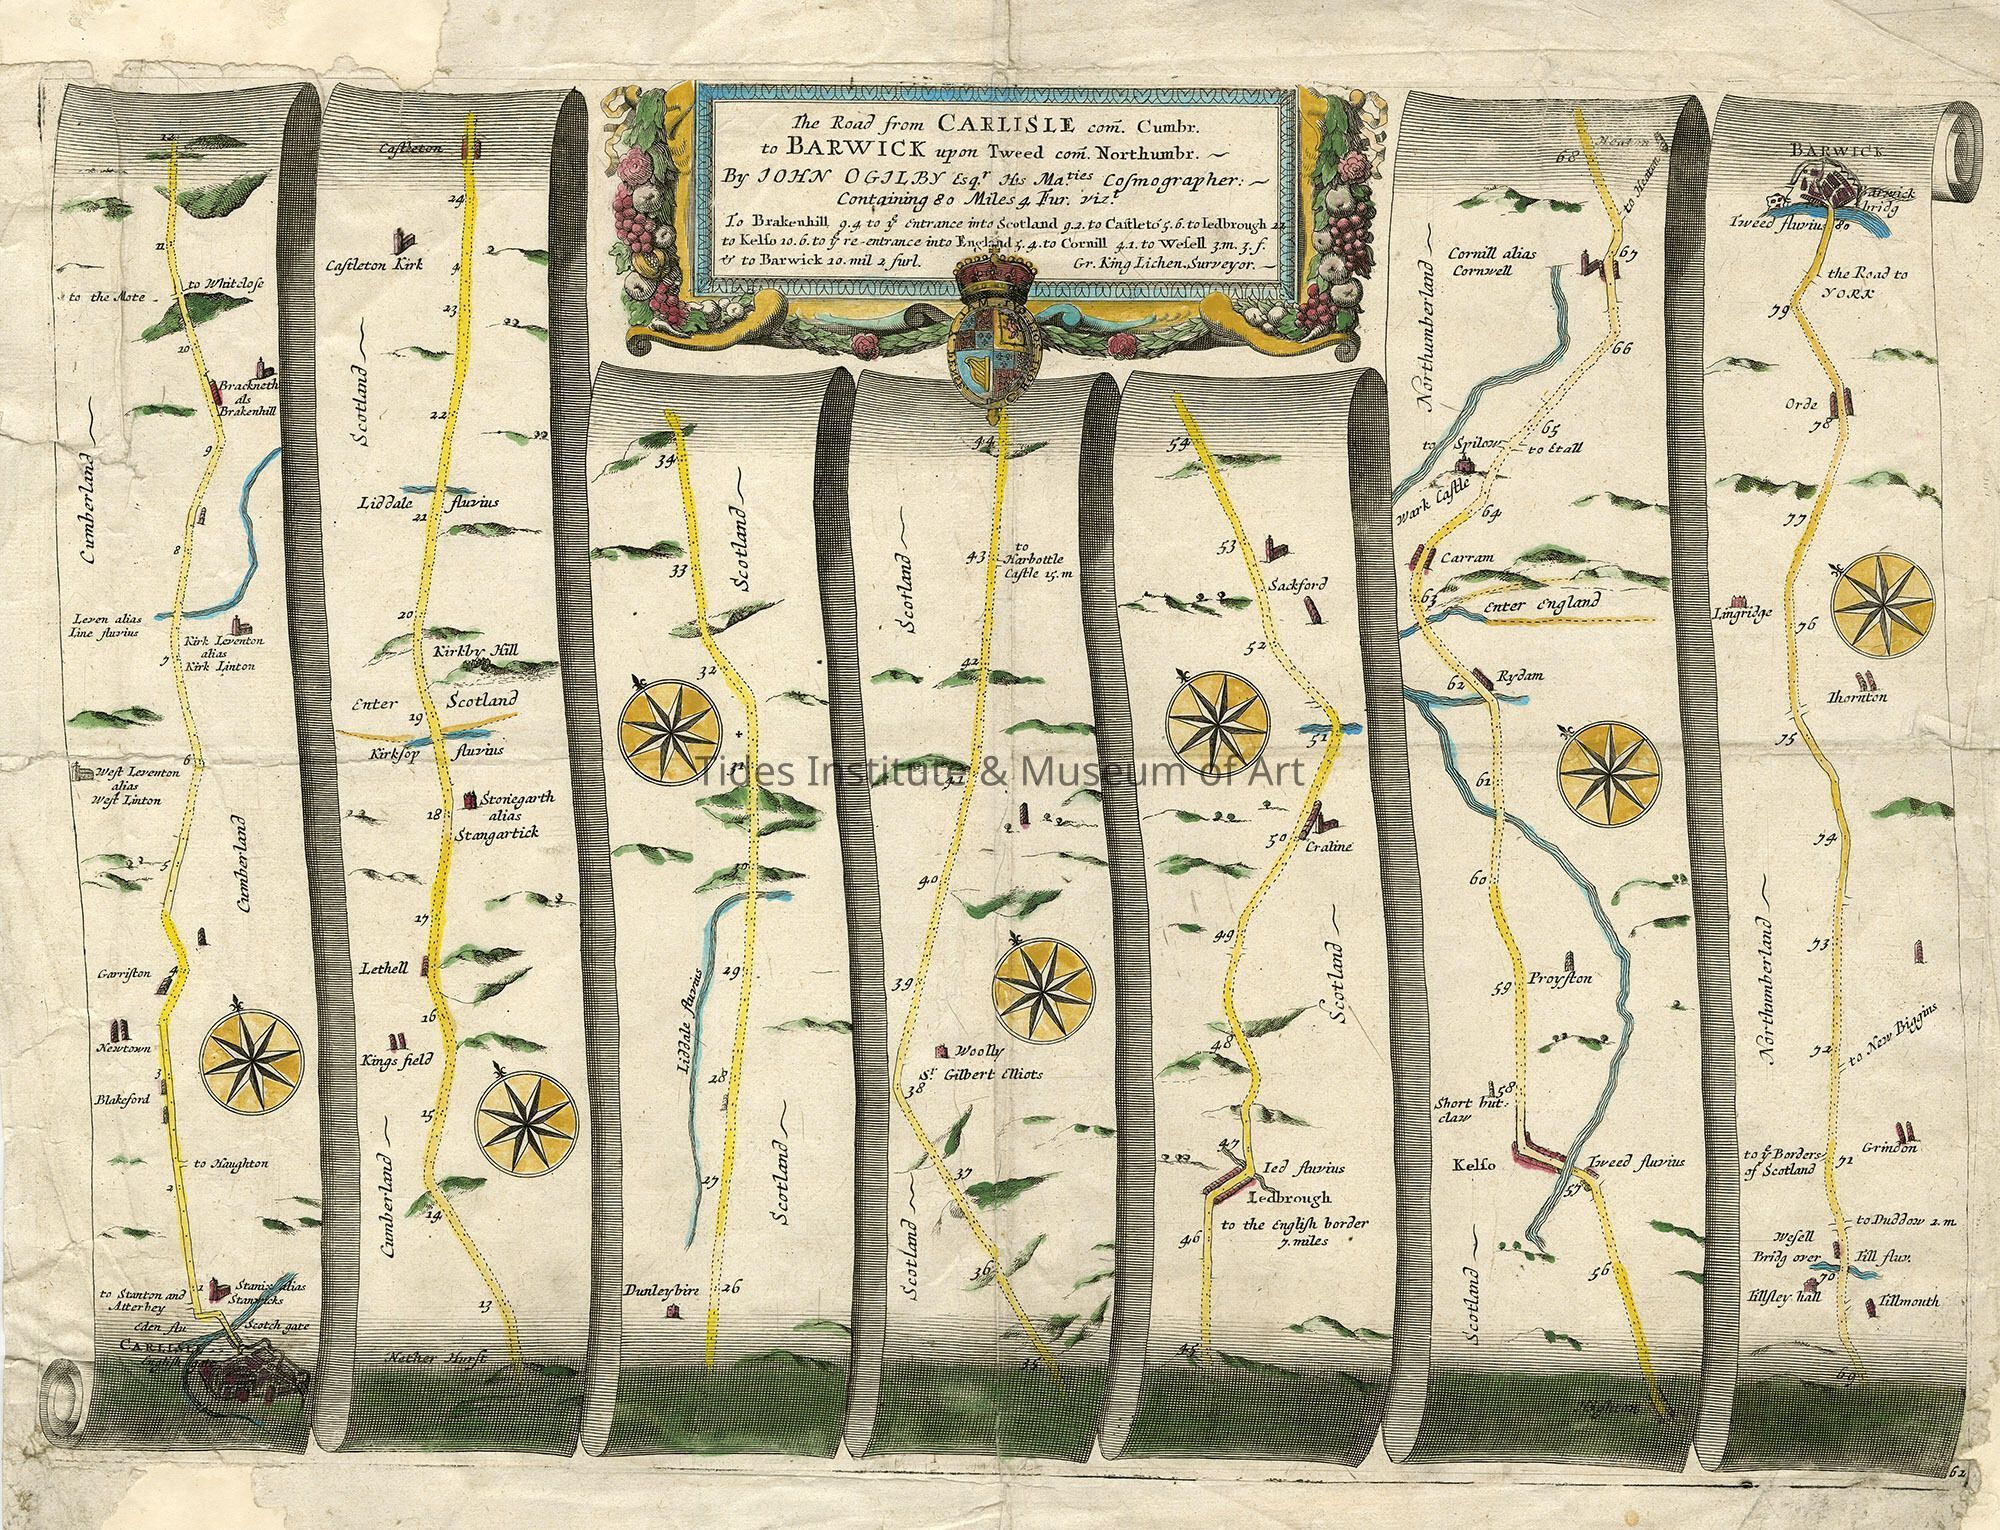 The Road from CARLISLE com̄. Cumbr.
to BARWICK upon Tweed com̄. Northumbr.
By IOHN OGILBY Esq.r His Ma.ties Cosmographer:
Containing 80 Miles 4 Fur. viz.t
To Brakenhill 9.4 to ye Entrance into Scotland 9.2. to Castletō 5.6. to Iedbrough 22
to Kelso 10.6. to ye re-entrance into England 5.4. to Cornill 4.1. to Wesell 3.m. 3.f.
& to Barwick 10. mil 2 furl. Gr. King Lichen. Surveyor.
12
11
to Whitclose
to the Mote
10
Brackneth
als
Brakenhill
9
Cumberland
8
Leven alias
Line fluvius
Kirk Leventon
alias
Kirk Linton
7
6
West Leventon
alias
West Linton
Cumberland
5
Garriston
4
Newtown
3
Blakeford
to Haughton
2
1
Stanix alias
Stanwicks
to Stanton and
Atterbey
Eden flu
Scotch gate
CARLISLE
English gate
Castleton
24
Castleton Kirk
4
23
Scotland
22
Liddale fluvius
21
20
Kirkby Hill
Enter Scotland
19
Kirksop fluvius
Stonegarth
alias
Stangartick
18
17
Lethell
16
Kings field
15
Cumberland
14
13
Nether Hurst
34
Scotland
33
32
31
30
29
Liddale fluvius
28
27
Scotland
Dunleybire
26
44
43
to
Harbottle
Castle 15. m
Scotland
42
41
40
39
Woolly
Sr Gilbert Elliots
38
37
Scotland
36
35
54
53
Sackford
52
51
50
Craline
49
Scotland
48
47
Ied fluvius
Iedbrough
to the English border
7. miles
46
45
68
Heaton
to Heaton
67
Cornill alias
Cornwell
Northumberland
66
65
to Spilow
to Etall
Wark Castle
64
Carram
63
Enter England
Rydam
62
61
60
Proyston
59
58
Short but
claw
Kelso
Tweed fluvius
57
56
Scotland
BARWICK
Barwick
bridg
Tweed fluvius
80
the Road to
YORK
79
Orde
78
77
Lingridge
76
Thornton
75
74
Northumberland
73
72
to New Biggins
Grindon
to ye Borders
of Scotland
71
to Duddow 2. m
Wesell
Bridg over Till fluv.
70
Tillsley hall
Tillmouth
69
62
Tides Institute & Museum of Art